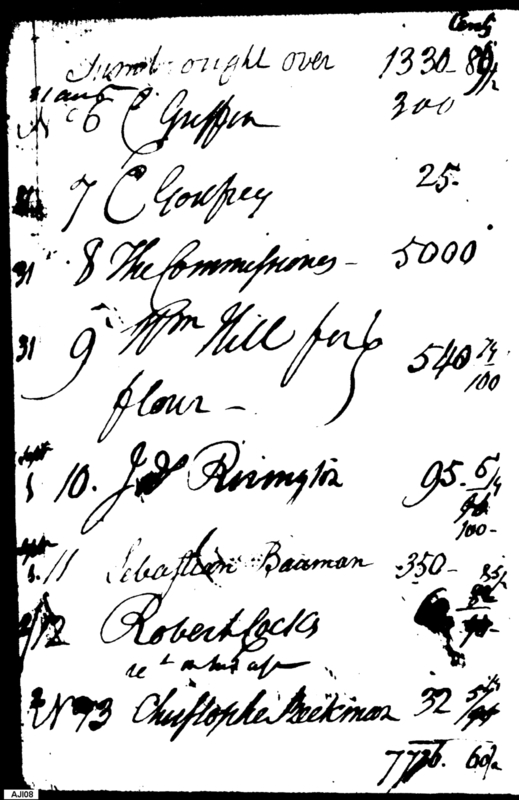 Cents
Sum brought over 1330 - 86/2
31 aug
N° 6 C Griffin 300
7 C Godfrey 25.
31 8 The Commissiones - 5000
31 9 Wm Hill for
flour - 540 74/100
Sept
1 10. J Rivington 95.
100 -
Sept
1. 11 Sebastian Bauman 350 -
12 Robert Cocks
2 N° 13 Christophe Beekman 32
7736. 60/2
AJI08